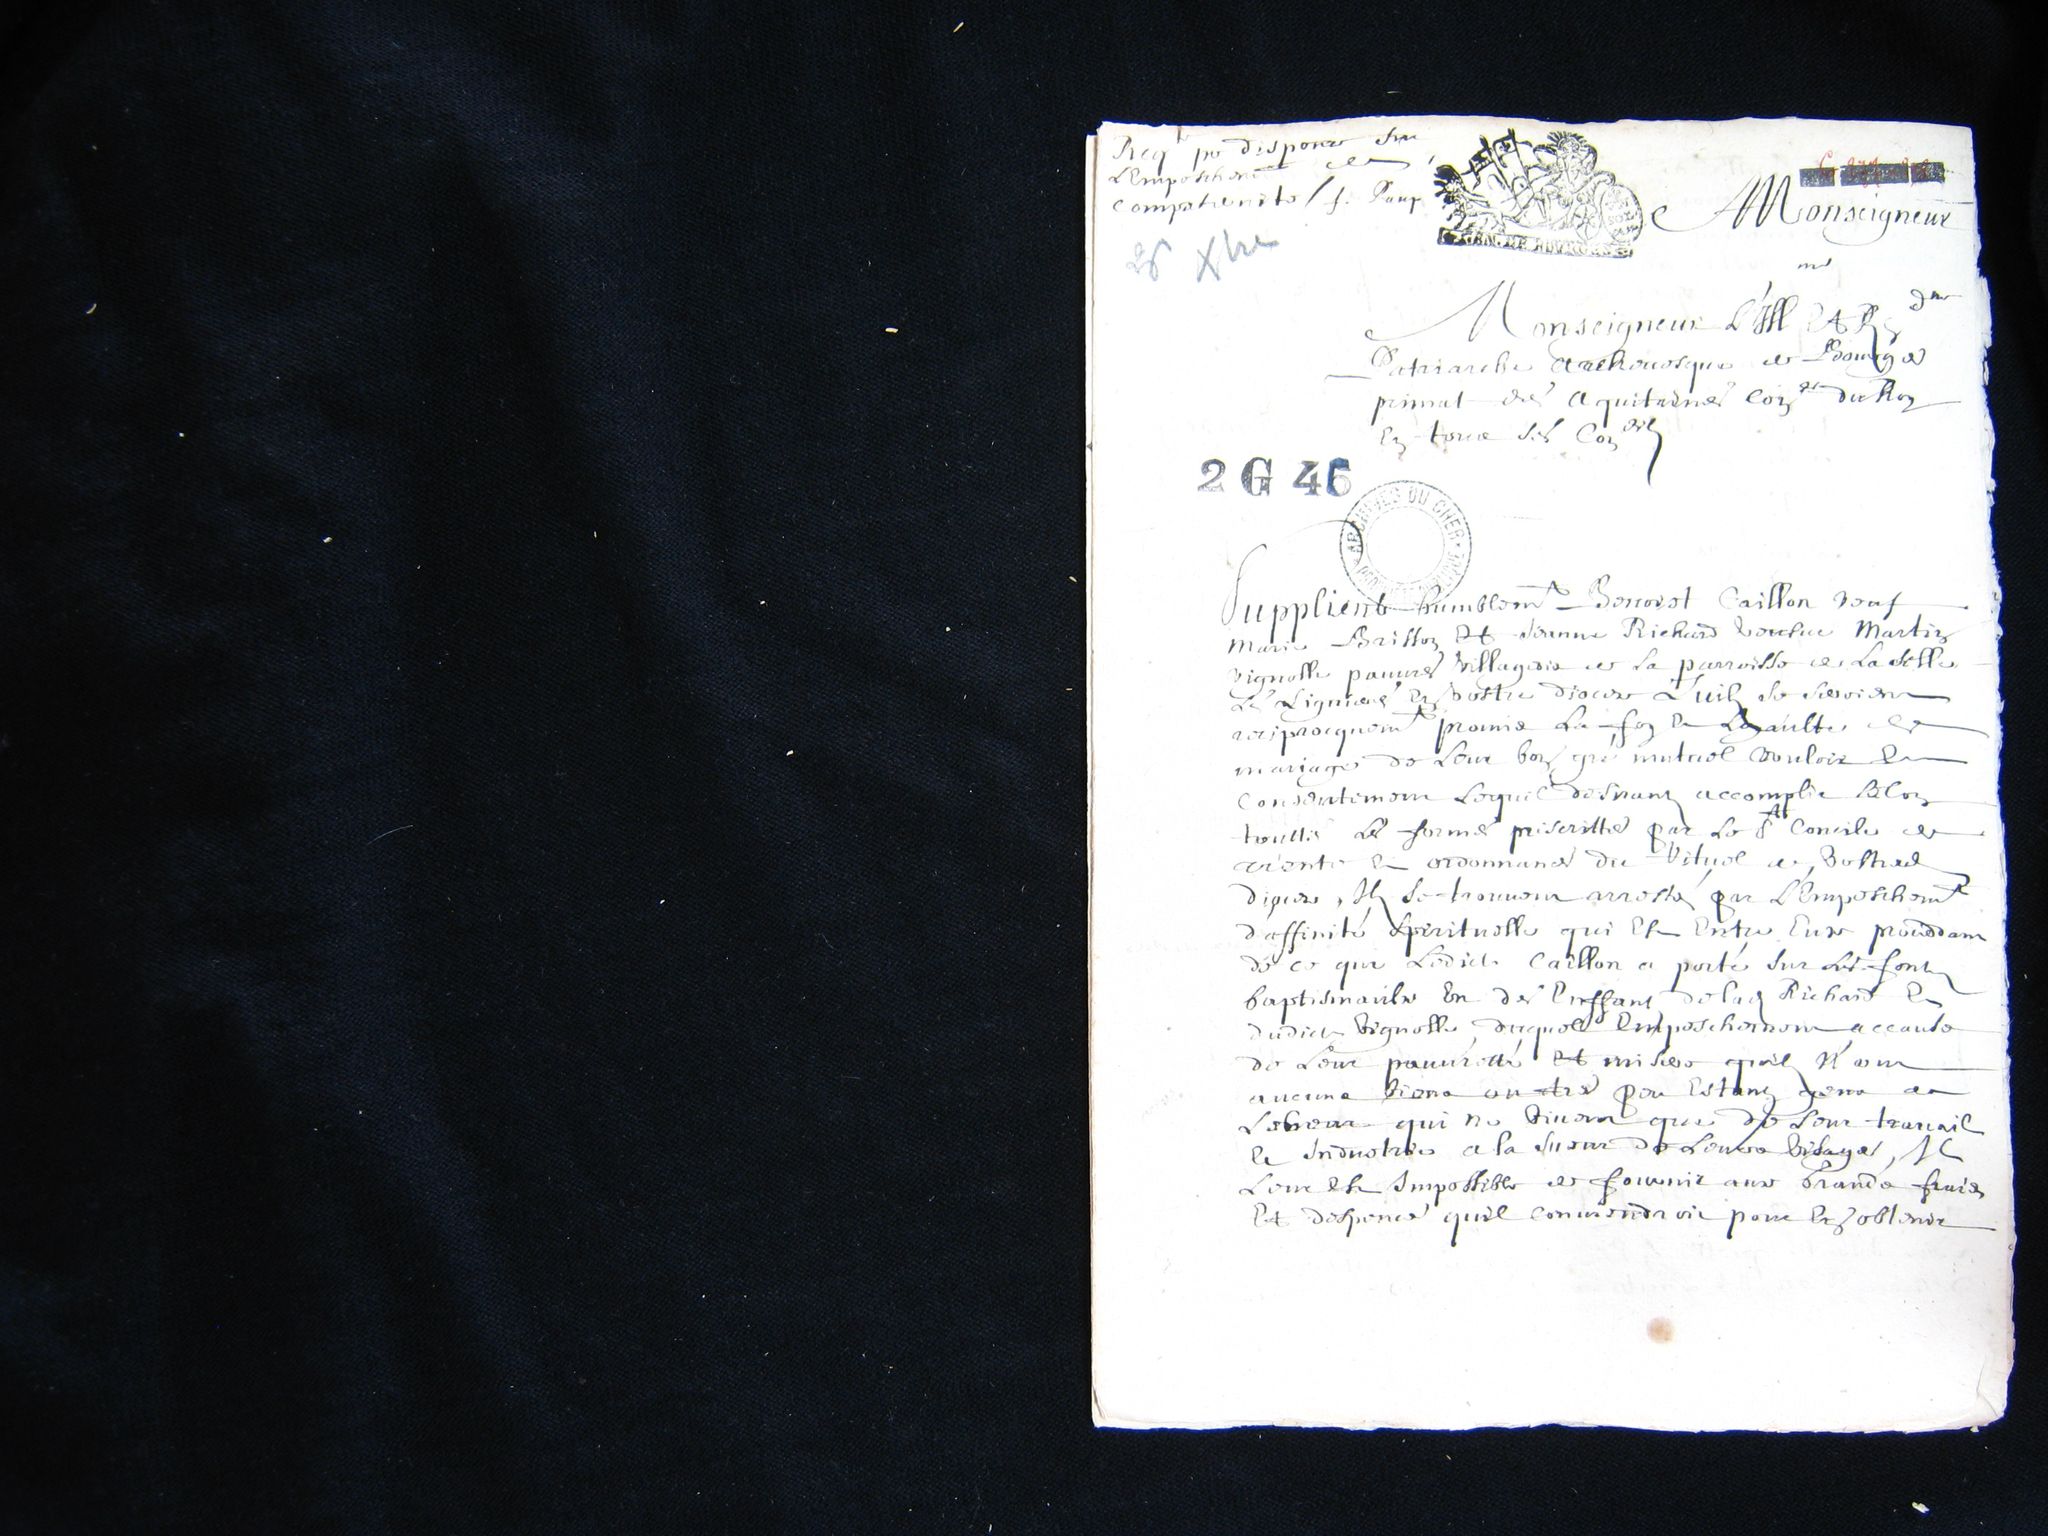 Req.te po dispence sur
L'Empeschem.t de
Compaternité / f. Paup
e A Monseigneur
28 Xbre
GEN. DE BOURGES
Monseigneur L'Ill.me Et R.dme
Patriarche Archevesque de Bourges
primat des Aquitaines Con.er du Roy
En tous ses Con.eils
2 G 46
ARCHIVES DU CHER
Supplient humblem.t Benoist Caillon veuf
Marie Brisson Et Jeanne Richard veufve Martin
Vignolle pauvres villageois de La parroisse de La Selle
Les Lignieres En vostre diocese Qu'ilz se seroient
reciprocquem.t promis La foy Et Loyaulté de
mariage de Leur bon gré mutuel vouloir Et
Consentement Lequel desirant accomplir selon
touttes Les formes prescrittes par Le S.t Concile de
trente Et ordonnances du Rituel de vostre
diocese, Ilz se trouvent arrestés par L'Empeschem.t
d'affinité spirituelle qui Est Entre Eux procedant
de ce que Ledict Caillon a porté sur Les fontz
baptismaulx Un des Enffans de lad Richard Et
dudict Vignolle, duquel Empeschement accause
de Leur pauvretté Et misere qu'ilz N'ont
aucuns biens ou tres peu Estans gens de
Labeur qui ne vivent que de Leur travail
Et Industrie a la sueur de Leurs visages, Il
Leur Est Impossible de fournir aux Grands frais
Et despences qu'il conviendroit pour En obtenir